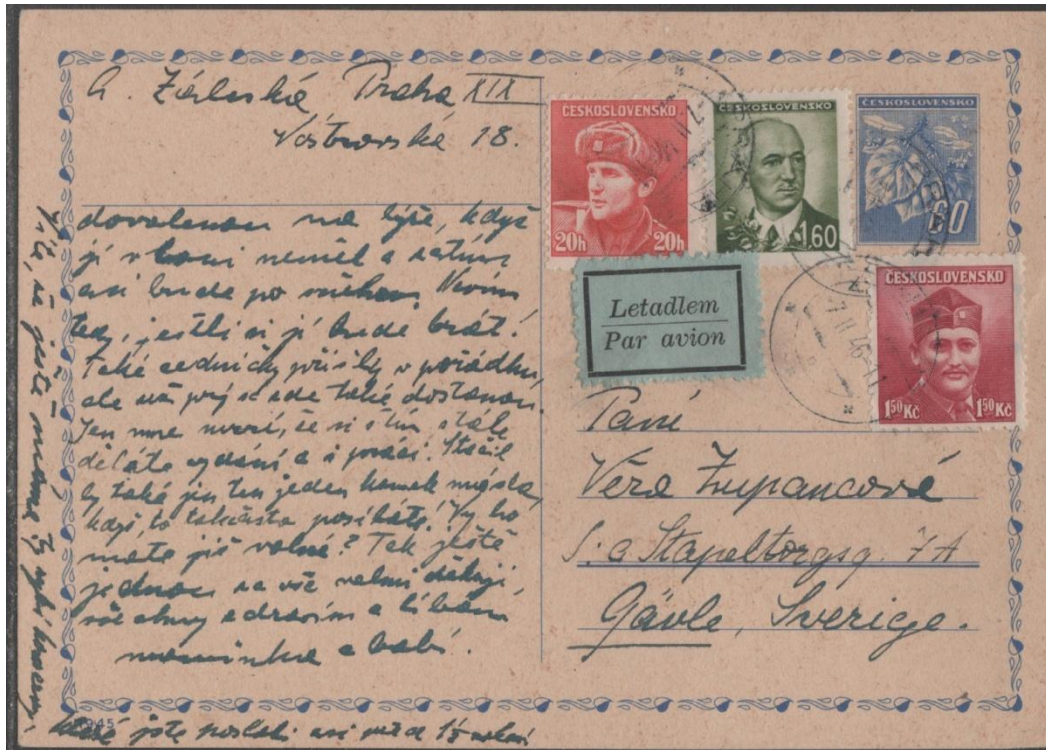 A. Záleská Praha XIX
Vostrovská 18.
ČESKOSLOVENSKO
20h 20h
ČESKOSLOVENSKO
1,60
ČESKOSLOVENSKO
60
ČESKOSLOVENSKO
1⁵⁰Kč 1⁵⁰Kč
Letadlem
Par avion
dovolenou na lyže, když
ji vloni neměl a zatím
asi bude po sněhu. Nevím
tedy, jestli si ji bude brát!
Také přišly v pořádku,
ale už prý se zde také dostanou.
Jen mne mrzí, že si s tím stále
děláte vydání a i práci. Stačil
by také jen ten jeden
když to takhle posíláte! Vy ho
máte již volné? Tak ještě
jednou za vše velmi děkuji,
vás oba zdravím a líbám
maminka a babi.
Paní
Věra Župancová
S. a Stapeltorgsg. 7A
Gävle, Sverige.
1945
které jste poslali asi před 15